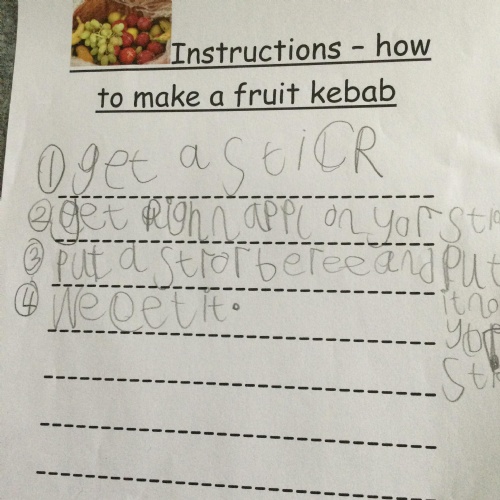 Instructions – how
to make a fruit kebab
① get a sticR
② get Righn appl on yor
③ put a strorberee and put
it no
④ We eet it.